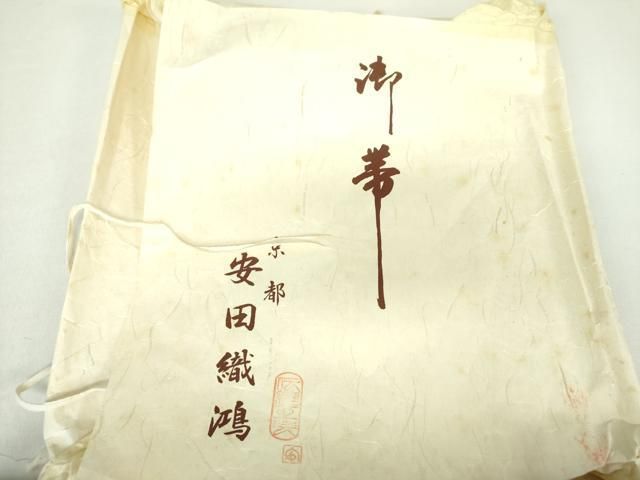 御帯
京都
安田織鴻